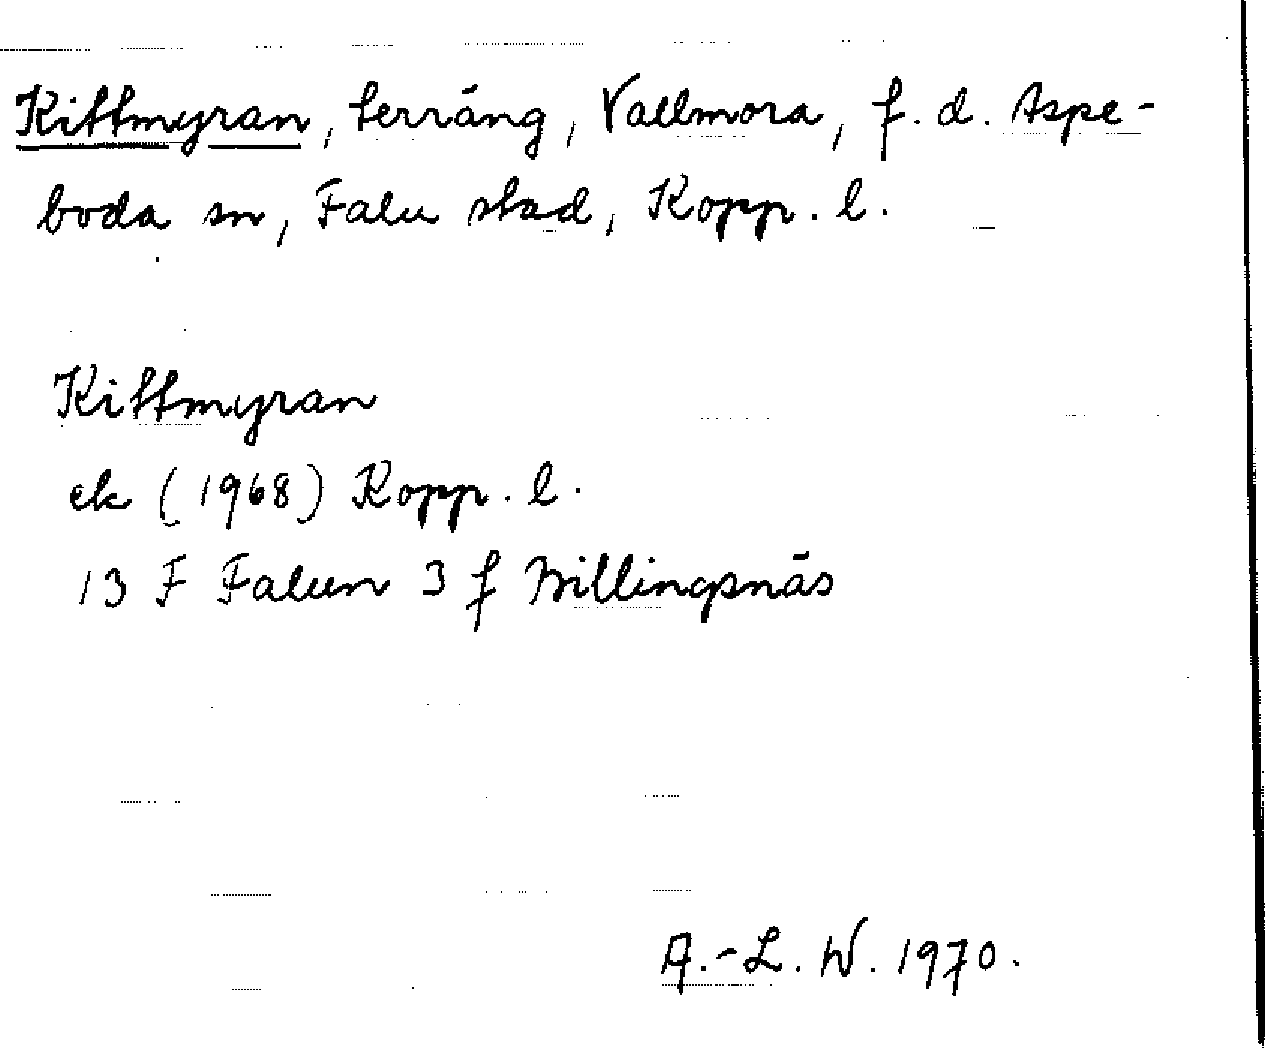 Kittmyran, terräng, Vallmora, f. d. Aspe-
boda sn, Falu stad, Kopp. l.
Kittmyran
ek (1968) Kopp. l.
13 F Falun 3 f Billingsnäs
A.-L. W. 1970.